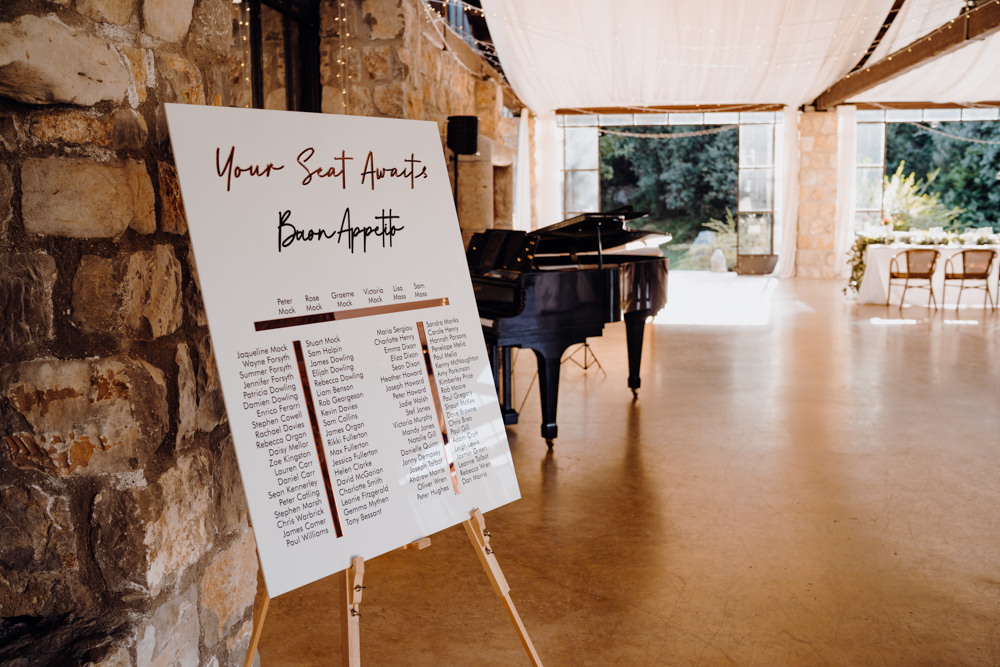 Your Seat Awaits
Buon Appetito
Peter Mock
Rose Mock
Graeme Mock
Victoria Mock
Lisa Mass
Sam Mass
Jaqueline Mock
Wayne Forsyth
Summer Forsyth
Jennifer Forsyth
Patricia Dowling
Damien Dowling
Enrico Ferarri
Stephen Cowell
Rachael Davies
Rebecca Organ
Daisy Mellor
Zoe Kingston
Lauren Carr
Daniel Carr
Sean Kennerley
Peter Catling
Stephen Marsh
Chris Warbrick
James Comer
Paul Williams
Stuart Mock
Sam Halpin
James Dowling
Elijah Dowling
Rebecca Dowling
Liam Benson
Rob Georgeson
Kevin Davies
Sam Collins
James Organ
Rikki Fullerton
Max Fullerton
Jessica Fullerton
Helen Clarke
David McGorian
Charlotte Smith
Leonie Fitzgerald
Gemma Mythen
Tony Bessant
Maria Sergiou
Charlotte Henry
Emma Dixon
Eliza Dixon
Sean Dixon
Heather Howard
Joseph Howard
Peter Howard
Jodie Walsh
Stef Jones
Victoria Murphy
Mandy Jones
Natalie Gill
Danielle Quinn
Jonny Dempsey
Joseph Talbot
Andrew Morris
Oliver Wren
Peter Hughes
Sandra Monks
Carole Henry
Hannah Parsons
Penelope Melia
Paul Melia
Kenny McNaughten
Amy Parkinson
Kimberley Price
Rob Moore
Paul Gregory
Shaun McKee
Dave Browne
Chris Brea
Paul Gill
Adam Craft
Leigh Lewis
Jasmin Green
Leanne Talbot
Rebecca Wren
Dan Morris